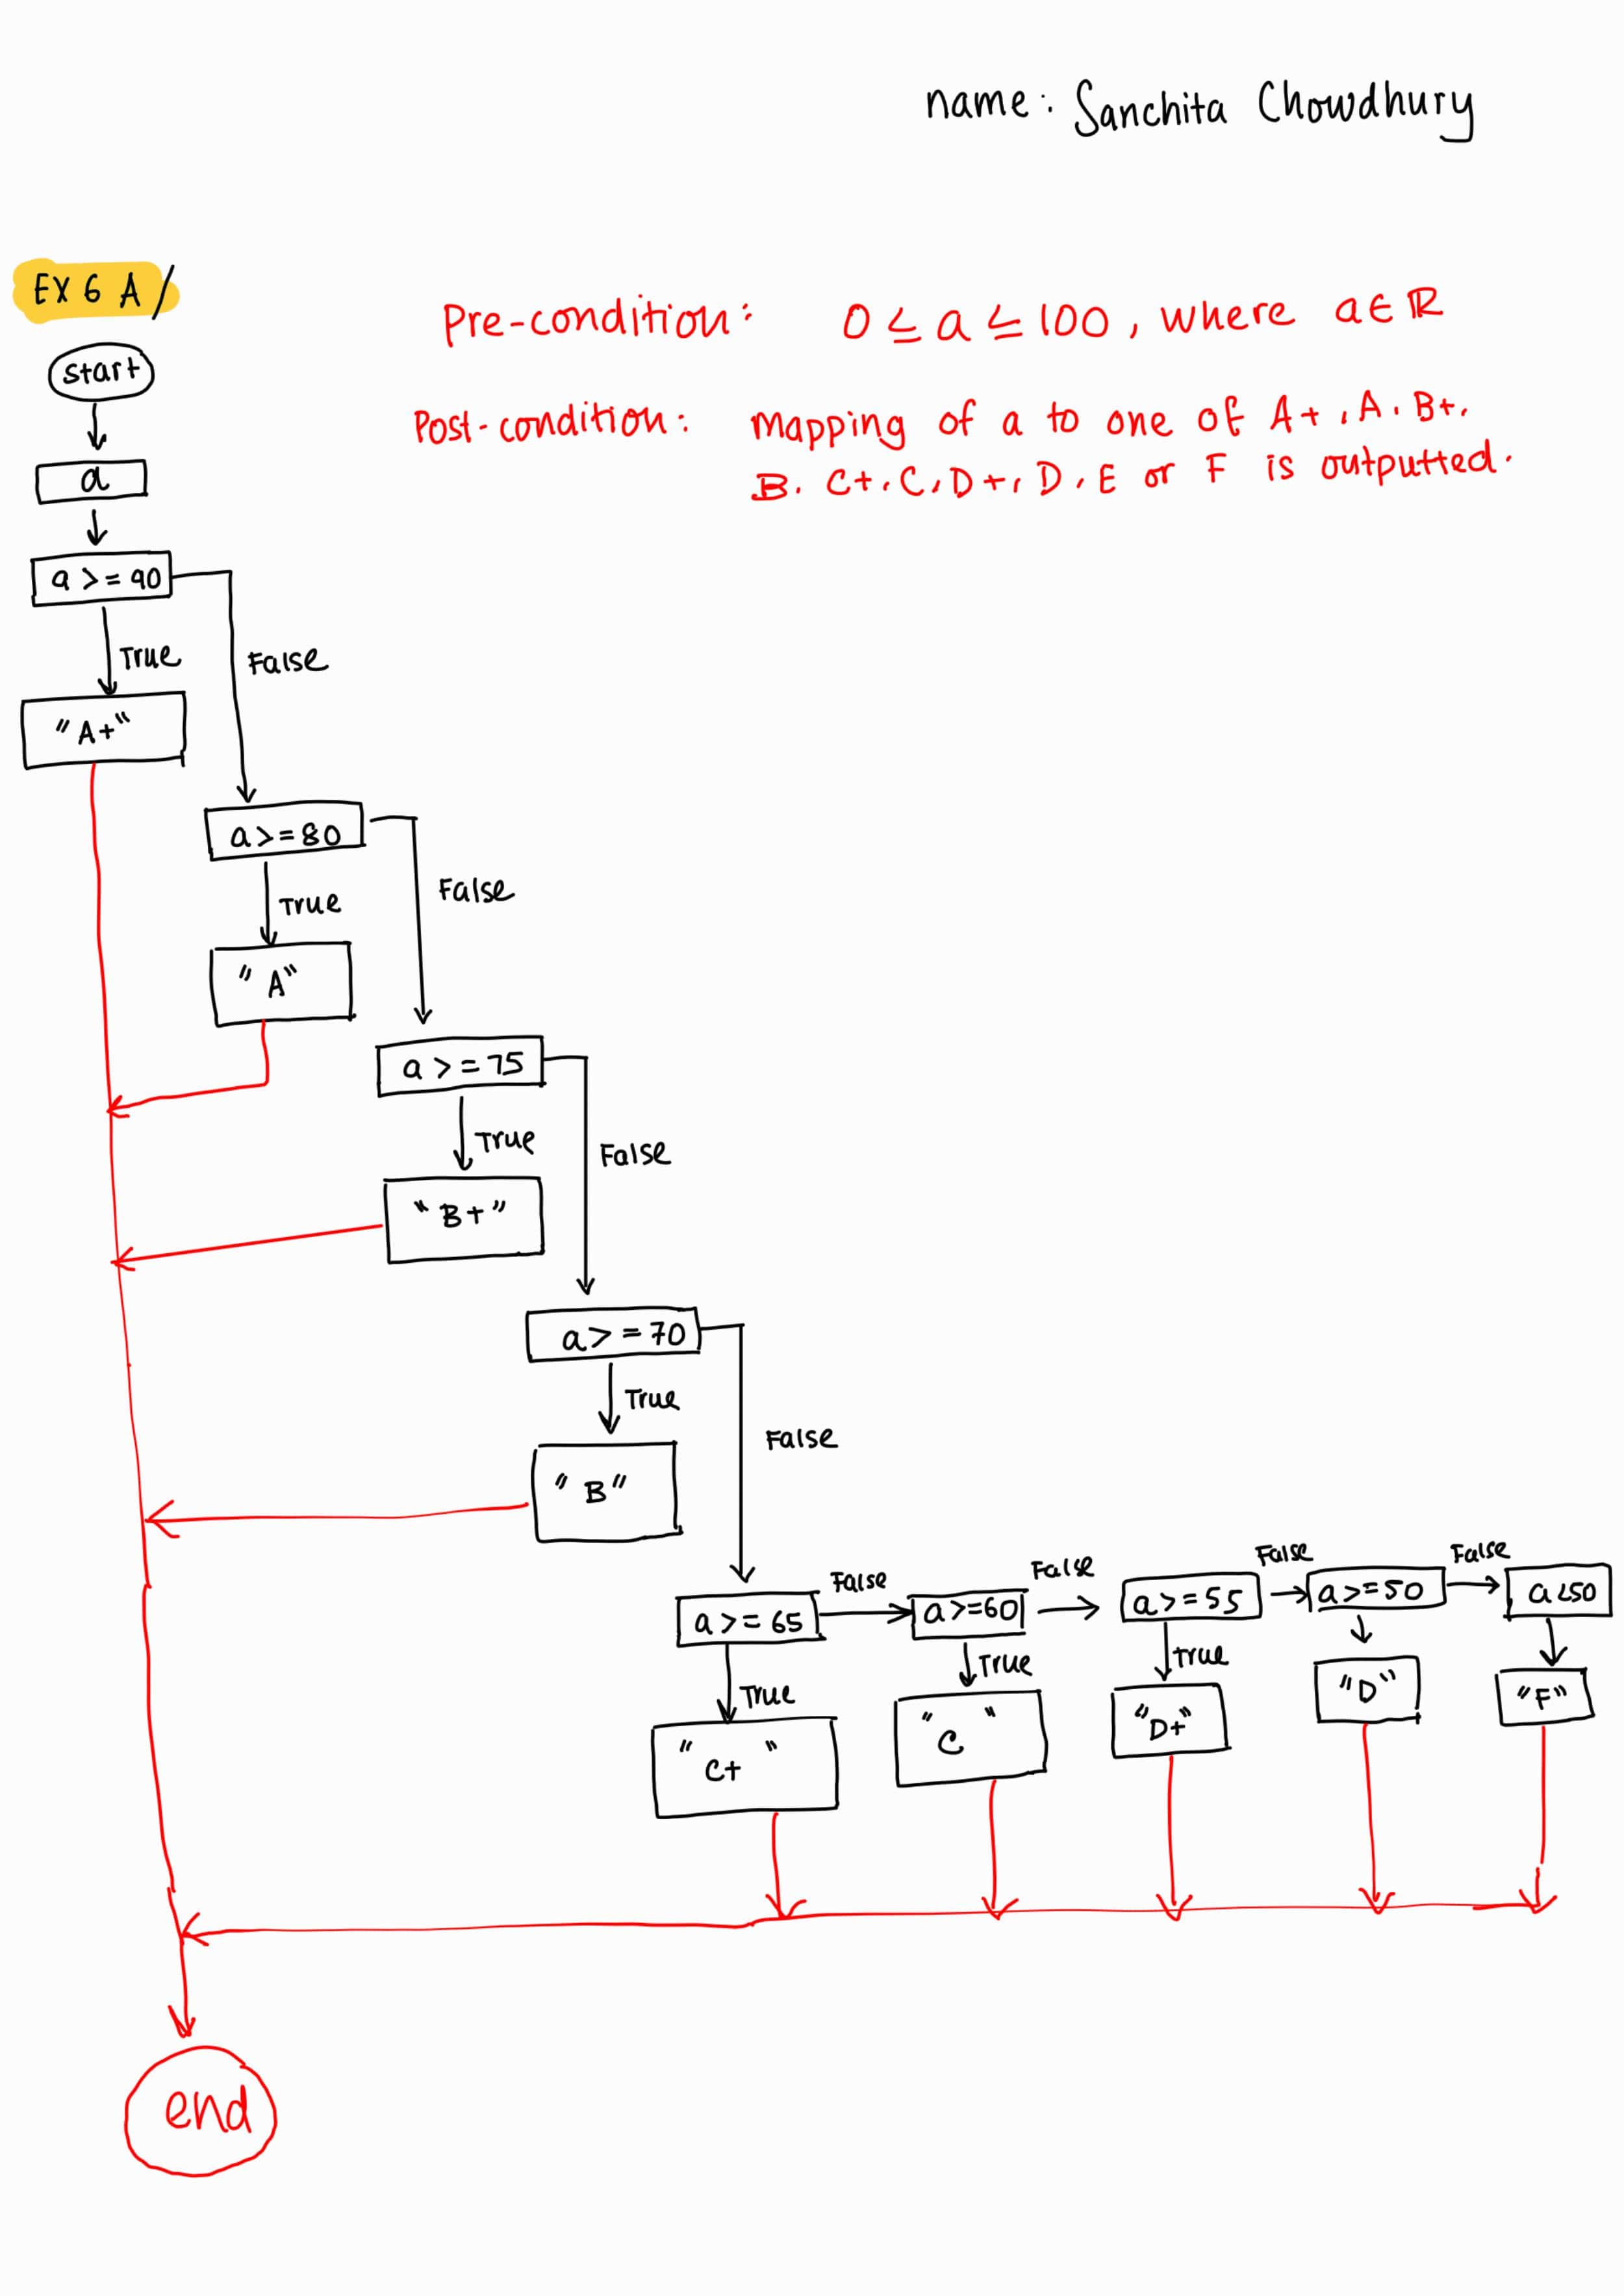 name: Sanchita Chowdhury
EX 6 A/
Pre-condition: 0 ≤ a ≤ 100, where a ∈ ℝ
Post-condition: mapping of a to one of A+, A, B+,
B, C+, C, D+, D, E or F is outputted.
start
a
a >= 90
True
False
"A+"
a >= 80
True
False
"A"
a >= 75
True
False
"B+"
a >= 70
True
False
"B"
a >= 65
False
a >= 60
False
a >= 55
False
a >= 50
False
a < 50
True
True
True
"C+"
"C"
"D+"
"D"
"F"
end